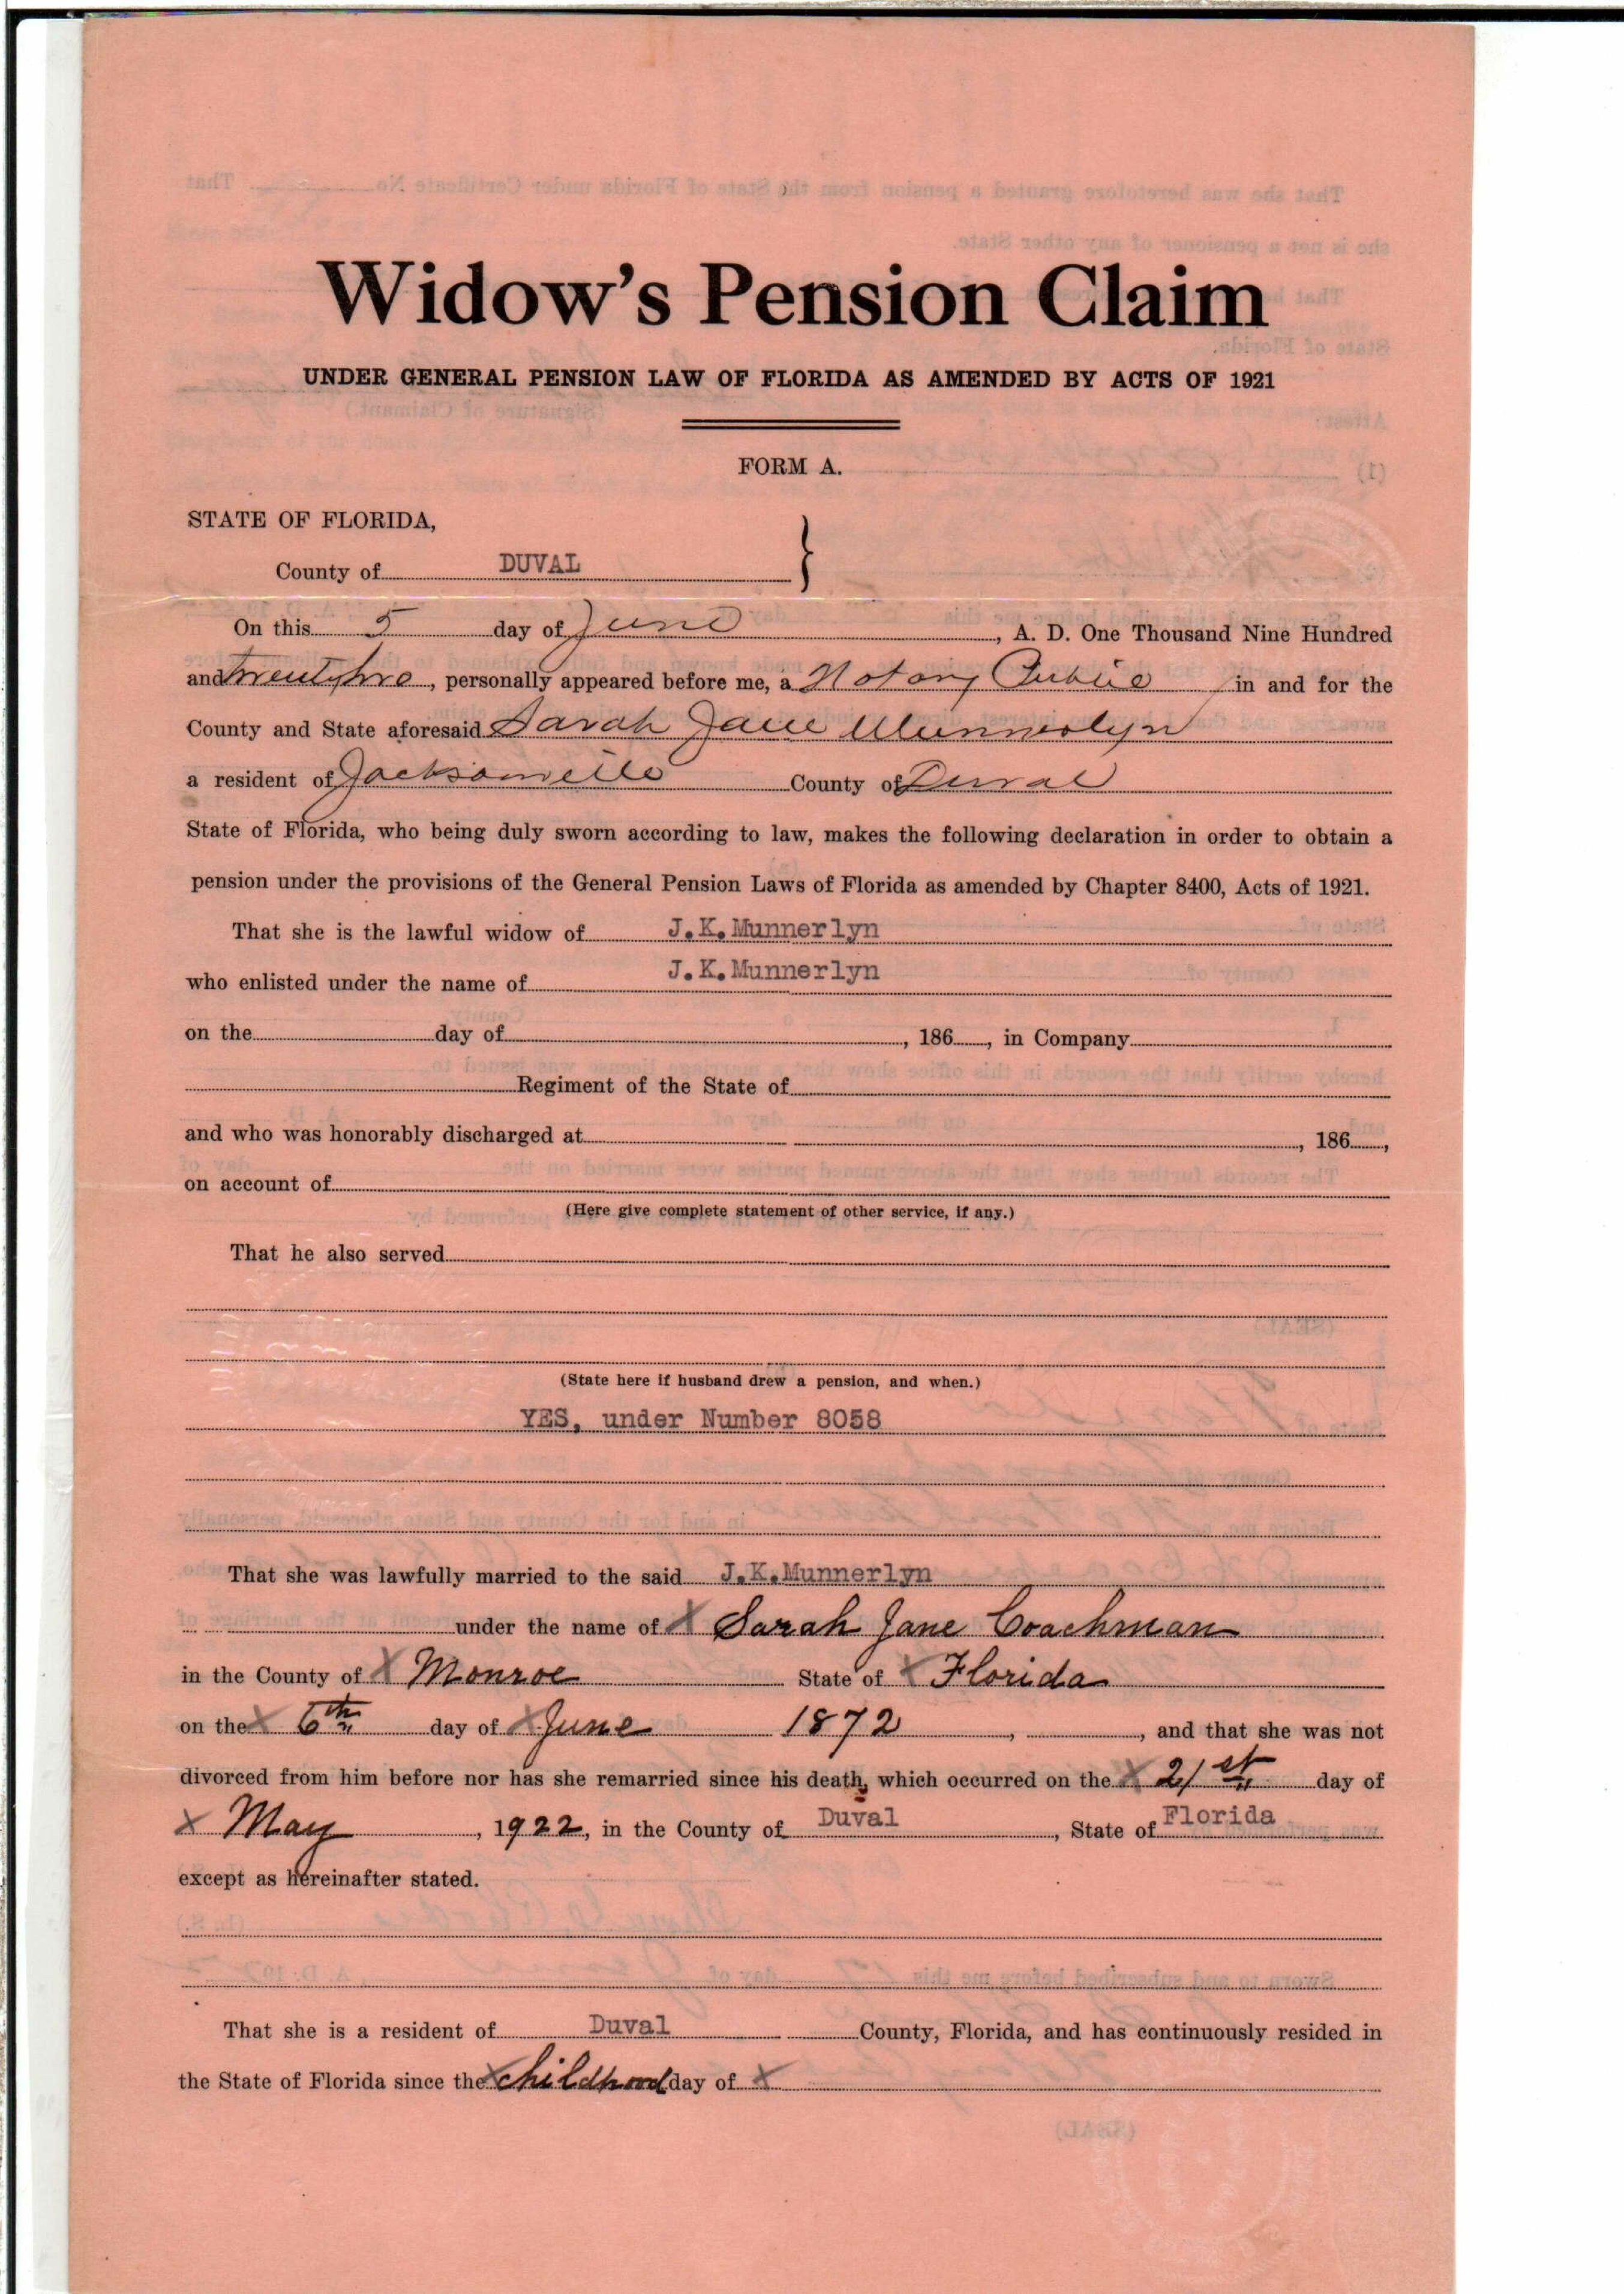 Widow's Pension Claim
UNDER GENERAL PENSION LAW OF FLORIDA AS AMENDED BY ACTS OF 1921
FORM A.
STATE OF FLORIDA,
County of DUVAL }
On this 5 day of June, A. D. One Thousand Nine Hundred
and twenty two, personally appeared before me, a Notary Public in and for the
County and State aforesaid Sarah Jane Munnerlyn
a resident of Jacksonville County of Duval
State of Florida, who being duly sworn according to law, makes the following declaration in order to obtain a
pension under the provisions of the General Pension Laws of Florida as amended by Chapter 8400, Acts of 1921.
That she is the lawful widow of J.K.Munnerlyn
who enlisted under the name of J.K.Munnerlyn
on the day of , 186 , in Company
Regiment of the State of
and who was honorably discharged at , 186 ,
on account of
(Here give complete statement of other service, if any.)
That he also served
(State here if husband drew a pension, and when.)
YES, under Number 8058
That she was lawfully married to the said J.K.Munnerlyn
under the name of X Sarah Jane Coachman
in the County of X Monroe State of X Florida
on the X 6th day of X June 1872 , , and that she was not
divorced from him before nor has she remarried since his death, which occurred on the X 21st day of
X May , 1922, in the County of Duval , State of Florida
except as hereinafter stated.
That she is a resident of Duval County, Florida, and has continuously resided in
the State of Florida since the X childhood day of X